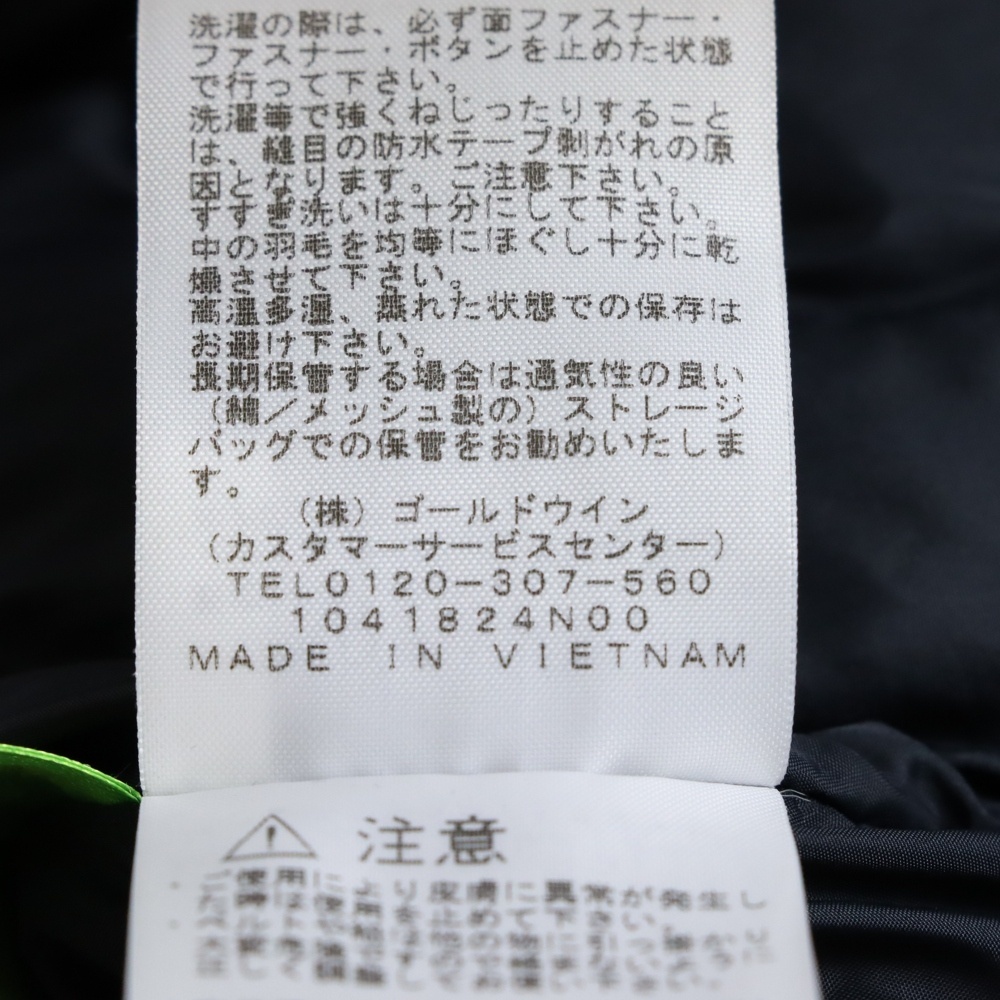 洗濯の際は、必ず面ファスナー・
ファスナー・ボタンを止めた状態
で行って下さい。
洗濯等で強くねじったりすること
は、縫目の防水テープ剥がれの原
因となります。ご注意下さい。
すすぎ洗いは十分にして下さい。
中の羽毛を均等にほぐし十分に乾
燥させて下さい。
高温多湿、蒸れた状態での保存は
お避け下さい。
長期保管する場合は通気性の良い
（綿／メッシュ製の）ストレージ
バッグでの保管をお勧めいたしま
す。
（株）ゴールドウイン
（カスタマーサービスセンター）
TEL0120−307−560
1041824N00
MADE IN VIETNAM
注意